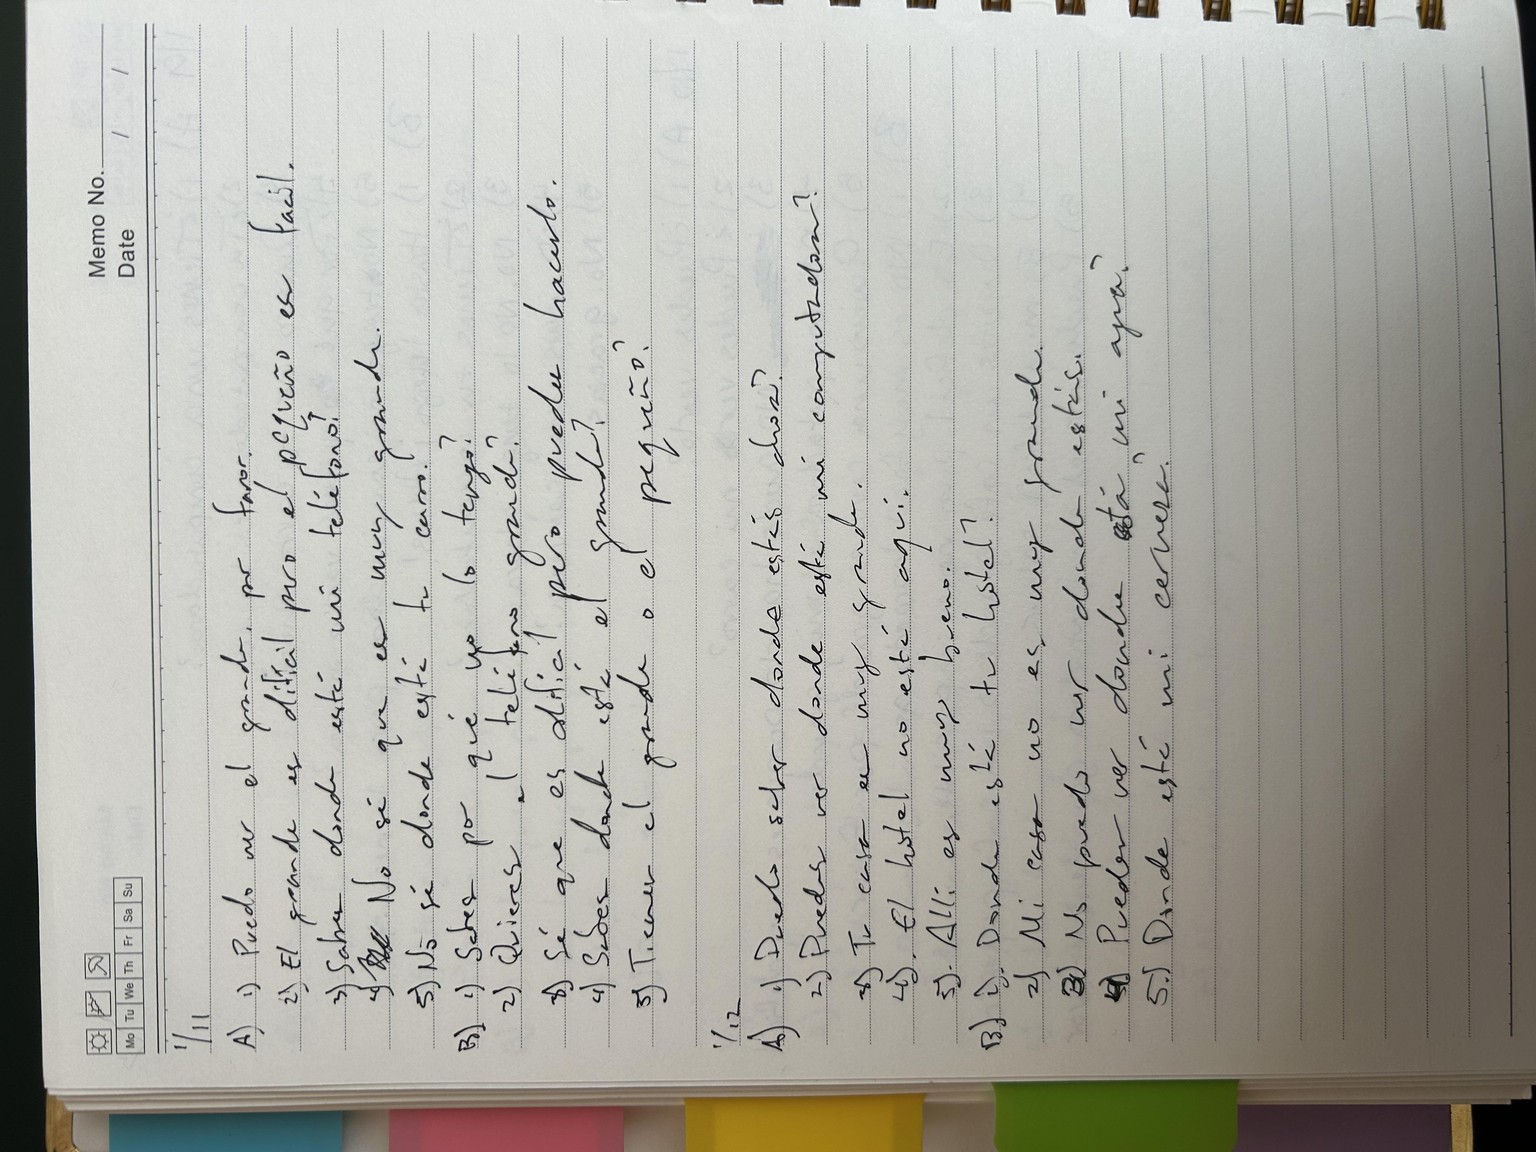 Memo No.
Date / /
Mo Tu We Th Fr Sa Su
1/11
A) 1) Puedo ver el grande, por favor.
2) El grande es difícil pero el pequeño es facíl.
3) Sabes donde está mi teléfono?
4) No sé que es muy grande.
5) No sé donde está tu carro.
B) 1) Sabes por qué yo lo tengo?
2) Quieres el teléfono grande?
3) Sé que es difícil, pero puedes hacerlo.
4) Sabes donde está el grande?
5) Tienes el grande o el pequeño?
1/12
A) 1) Puedo saber donde estás ahora?
2) Puedes ver donde está mi computadora?
3) Tu casa es muy grande.
4) El hotel no está aquí.
5) Allí es muy bueno.
B) 1) Donde está tu hotel?
2) Mi casa no es muy grande.
3) No puedo ver donde estás.
4) Puedes ver donde está mi agua?
5) Donde está mi cerveza?